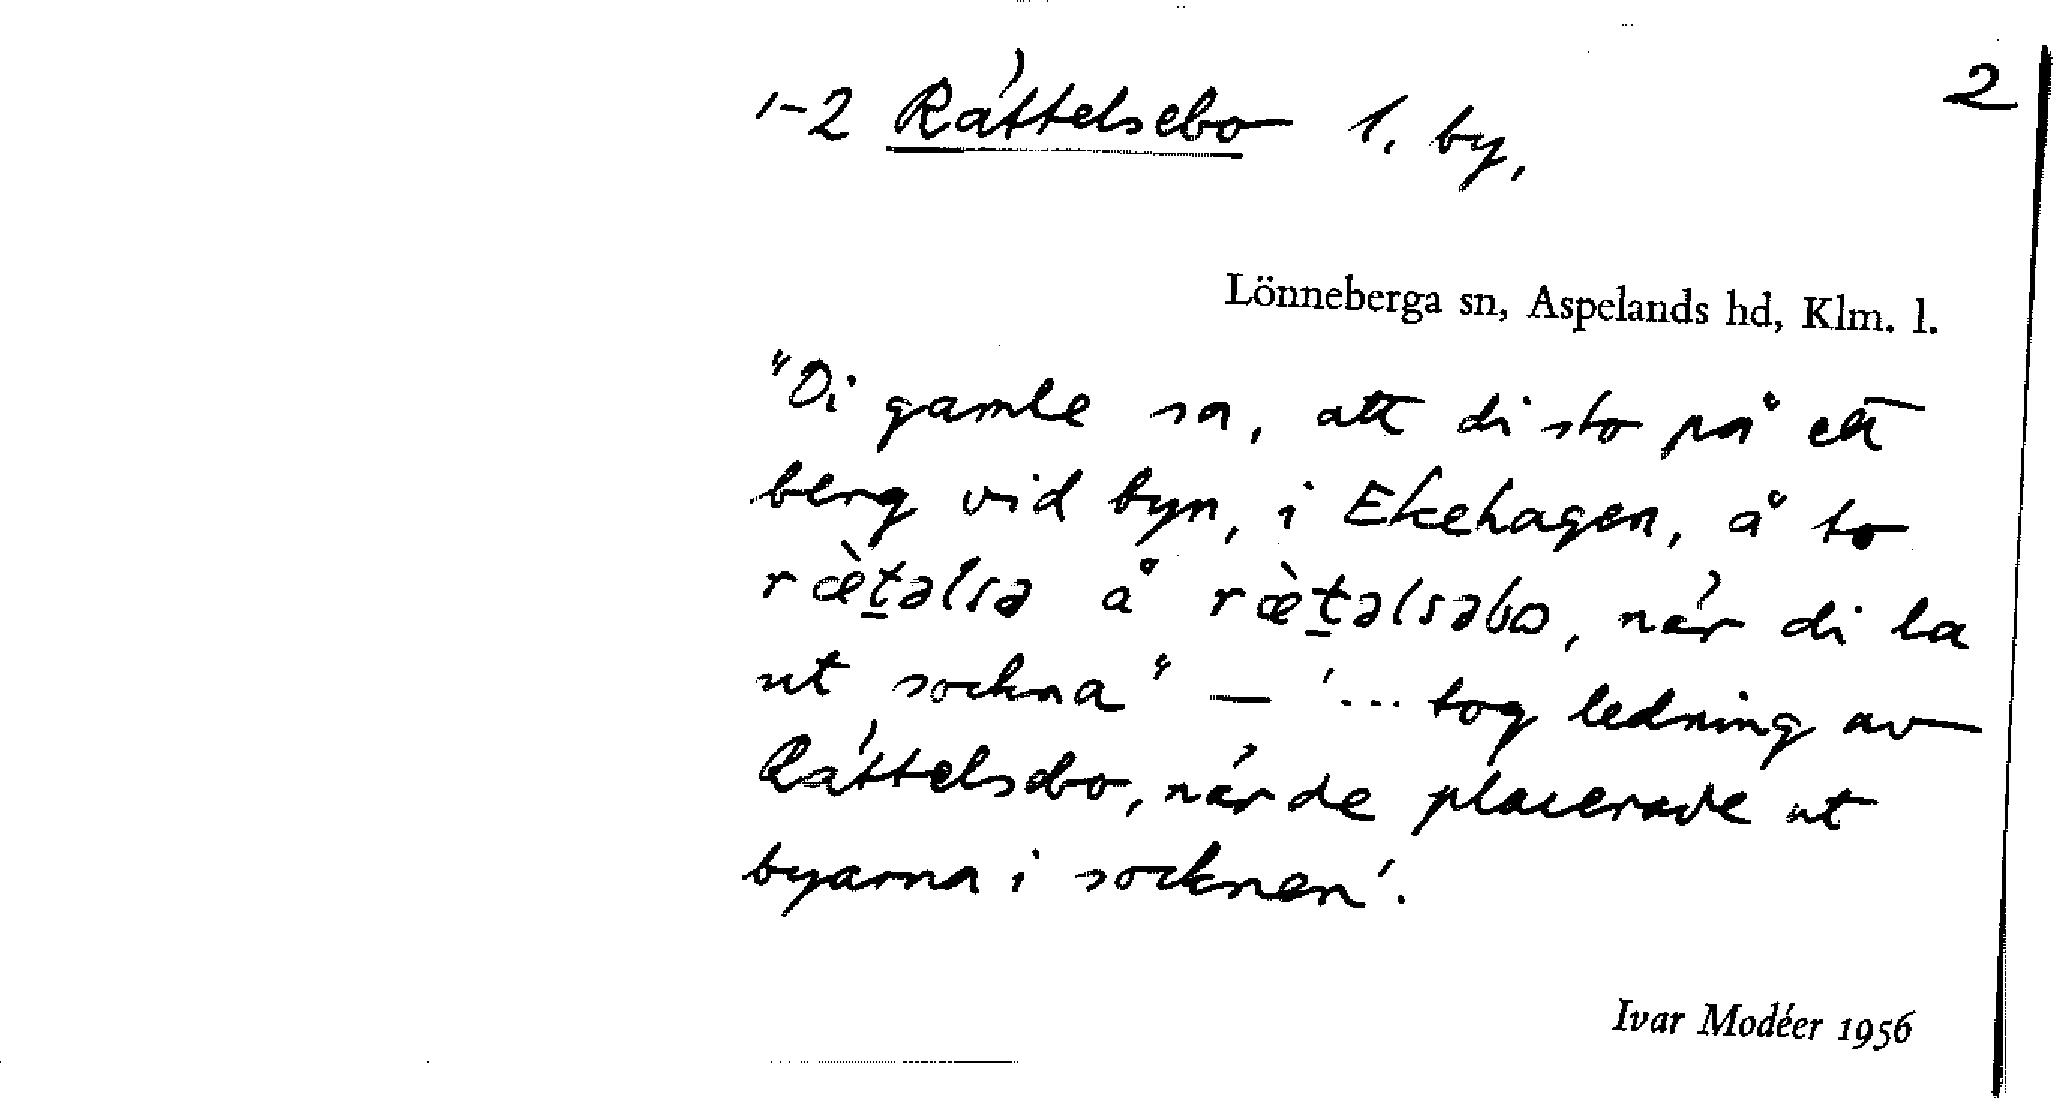 1-2 Rättelsebo 1. by, 2
Lönneberga sn, Aspelands hd, Klm. l.
"Di gamle sa, att di sto på ett
berg vid byn, i Ekehagen, å to
ræ̀t̠əlsə å ræ̀t̠əlsəbo, när di la
ut sockna" – '... tog ledning av
Rättelsebo, när de placerade ut
byarna i socknen'.
Ivar Modéer 1956